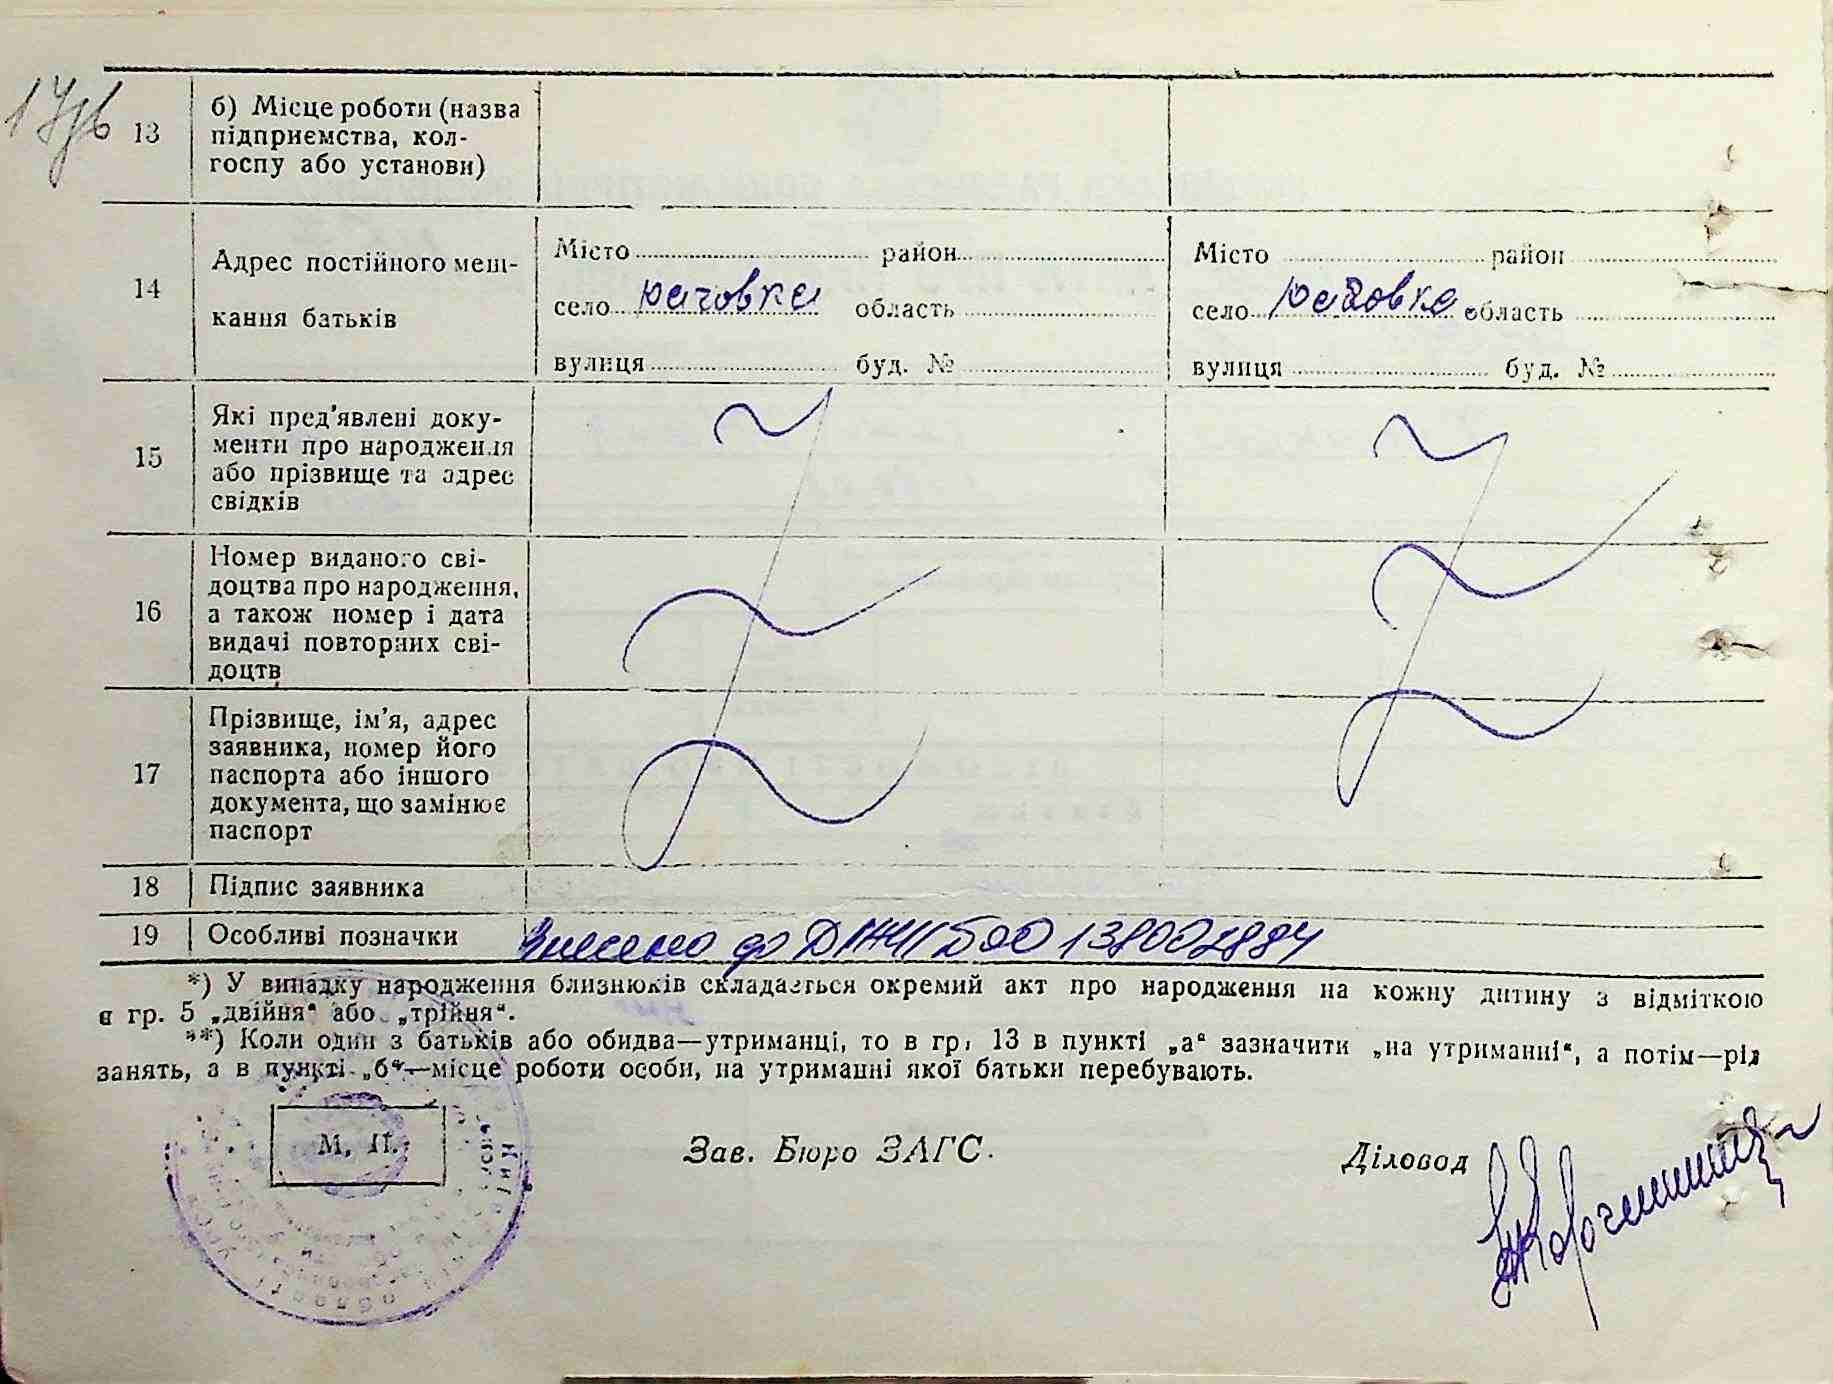 17зв
13
б) Місце роботи (назва
підприємства, кол-
госпу або установи)
14
Адрес постійного меш-
кання батьків
Місто район
село Юачовка область
вулиця буд. №
Місто район
село область
вулиця буд. №
15
Які пред'явлені доку-
менти про народження
або прізвище та адрес
свідків
16
Номер виданого сві-
доцтва про народження,
а також номер і дата
видачі повторних сві-
доцтв
17
Прізвище, ім'я, адрес
заявника, номер його
паспорта або іншого
документа, що замінює
паспорт
18 Підпис заявника
19 Особливі позначки Внесено до 138002884
*) У випадку народження близнюків складається окремий акт про народження на кожну дитину з відміткою
в гр. 5 „двійня“ або „трійня“.
**) Коли один з батьків або обидва—утриманці, то в гр. 13 в пункті „а“ зазначити „на утриманні“, а потім—рід
занять, а в пункті „б“—місце роботи особи, на утриманні якої батьки перебувають.
М. П.
Зав. Бюро ЗАГС.
Діловод